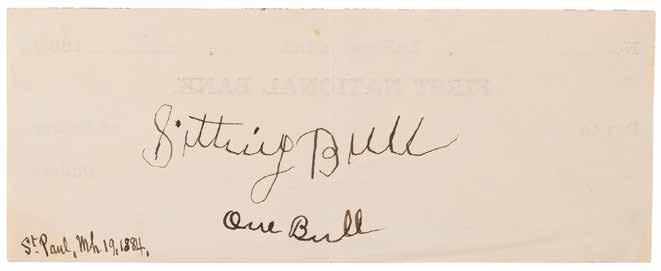 FIRST NATIONAL BANK
Sitting Bull
One Bull
St. Paul, Mh 19, 1884.